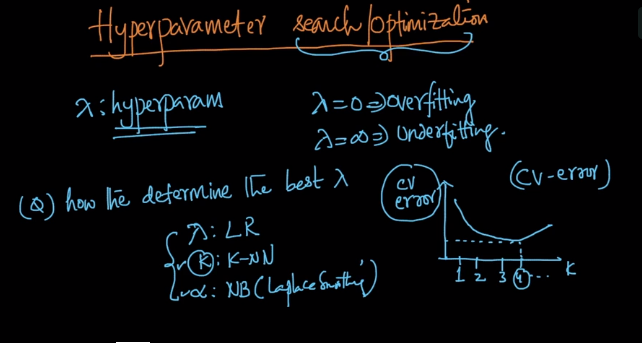 Hyperparameter search/optimization
λ: hyperparam
λ=0 ⇒ overfitting
λ=∞ ⇒ Underfitting.
(Q) how the determine the best λ
λ: LR
K: K-NN
α: NB (Laplace Smoothing)
CV error
(CV-error)
1 2 3 4 ... K